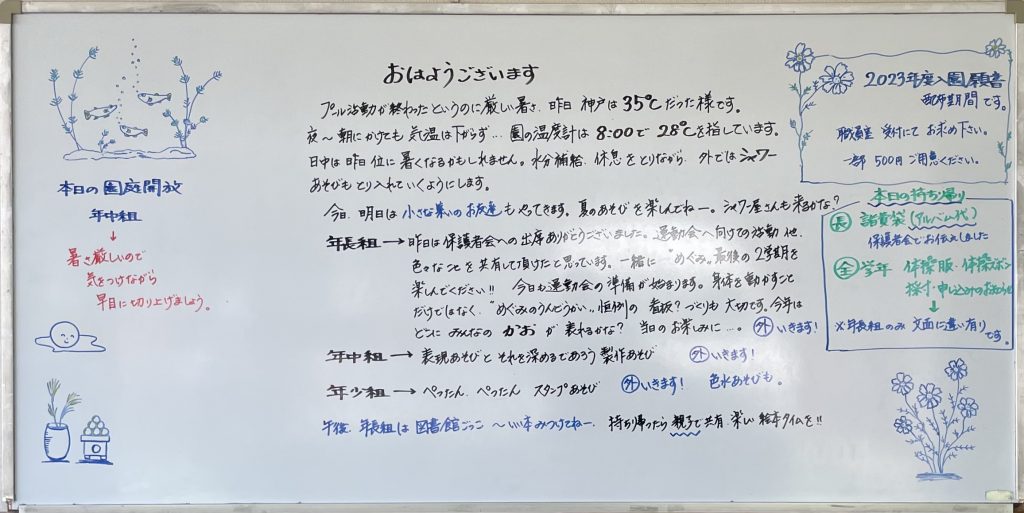 おはようございます
プール活動が終わったというのに厳しい暑さ、昨日 神戸は35℃だった様です。
夜〜朝にかけても 気温は下がらず… 園の温度計は 8:00で 28℃を指しています。
日中は昨日位に暑くなるかもしれません。水分補給、休息をとりながら、外ではシャワー
あそびもとり入れていくようにします。
今日、明日は 小さな集いのお友達もやってきます。夏のあそびを楽しんでねー。シャワー屋さんも来るかな?
年長組→昨日は保護者会への出席ありがとうございました。運動会へ向けての活動 他、
色々なことを共有して頂けたと思っています。一緒に "めぐみ" 最後の2学期を
楽しんでください!! 今日も運動会の準備が始まります。身体を動かすこと
だけではなく、"めぐみのうんどうかい" 恒例の 看板?づくりも 大切です。今年は
どこに みんなの かお が 表れるかな? 当日のお楽しみに…。 外 いきます!
年中組→ 表現あそびと それを深めるであろう 製作あそび 外 いきます!
年少組→ ぺったん、ぺったん スタンプあそび 外 いきます! 色水あそびも。
午後、年長組は 図書館ごっこ 〜いい本みつけてねー。 持ち帰ったら 親子で共有 楽しい 絵本タイムを!!
本日の園庭開放
年中組
↓
暑さ厳しいので
気をつけながら
早目に切り上げましょう。
2023年度入園願書
配布期間です。
職員室 受付にて お求め下さい。
一部 500円 ご用意ください。
本日の持ち帰り
長 諸費袋(アルバム代)
保護者会でお伝えしました
全 学年 体操服・体操ズボン
採寸・申し込みのおしらせ
↓
※年長組のみ 文面に違い有り
です。